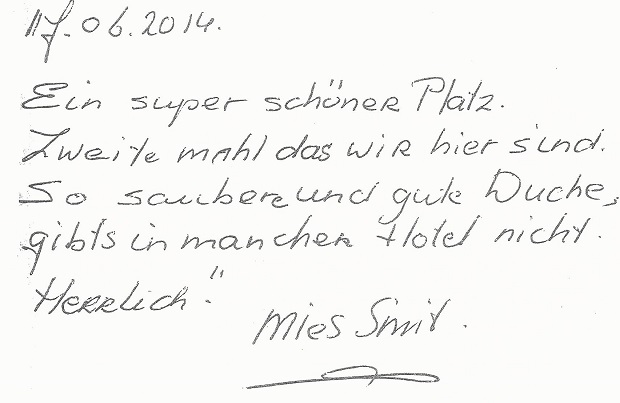 17.06.2014.
Ein super schöner Platz.
Zweite mahl das wir hier sind.
So saubere und gute Duche,
gibts in mancher Hotel nicht.
Herrlich!!
Mies Smit.